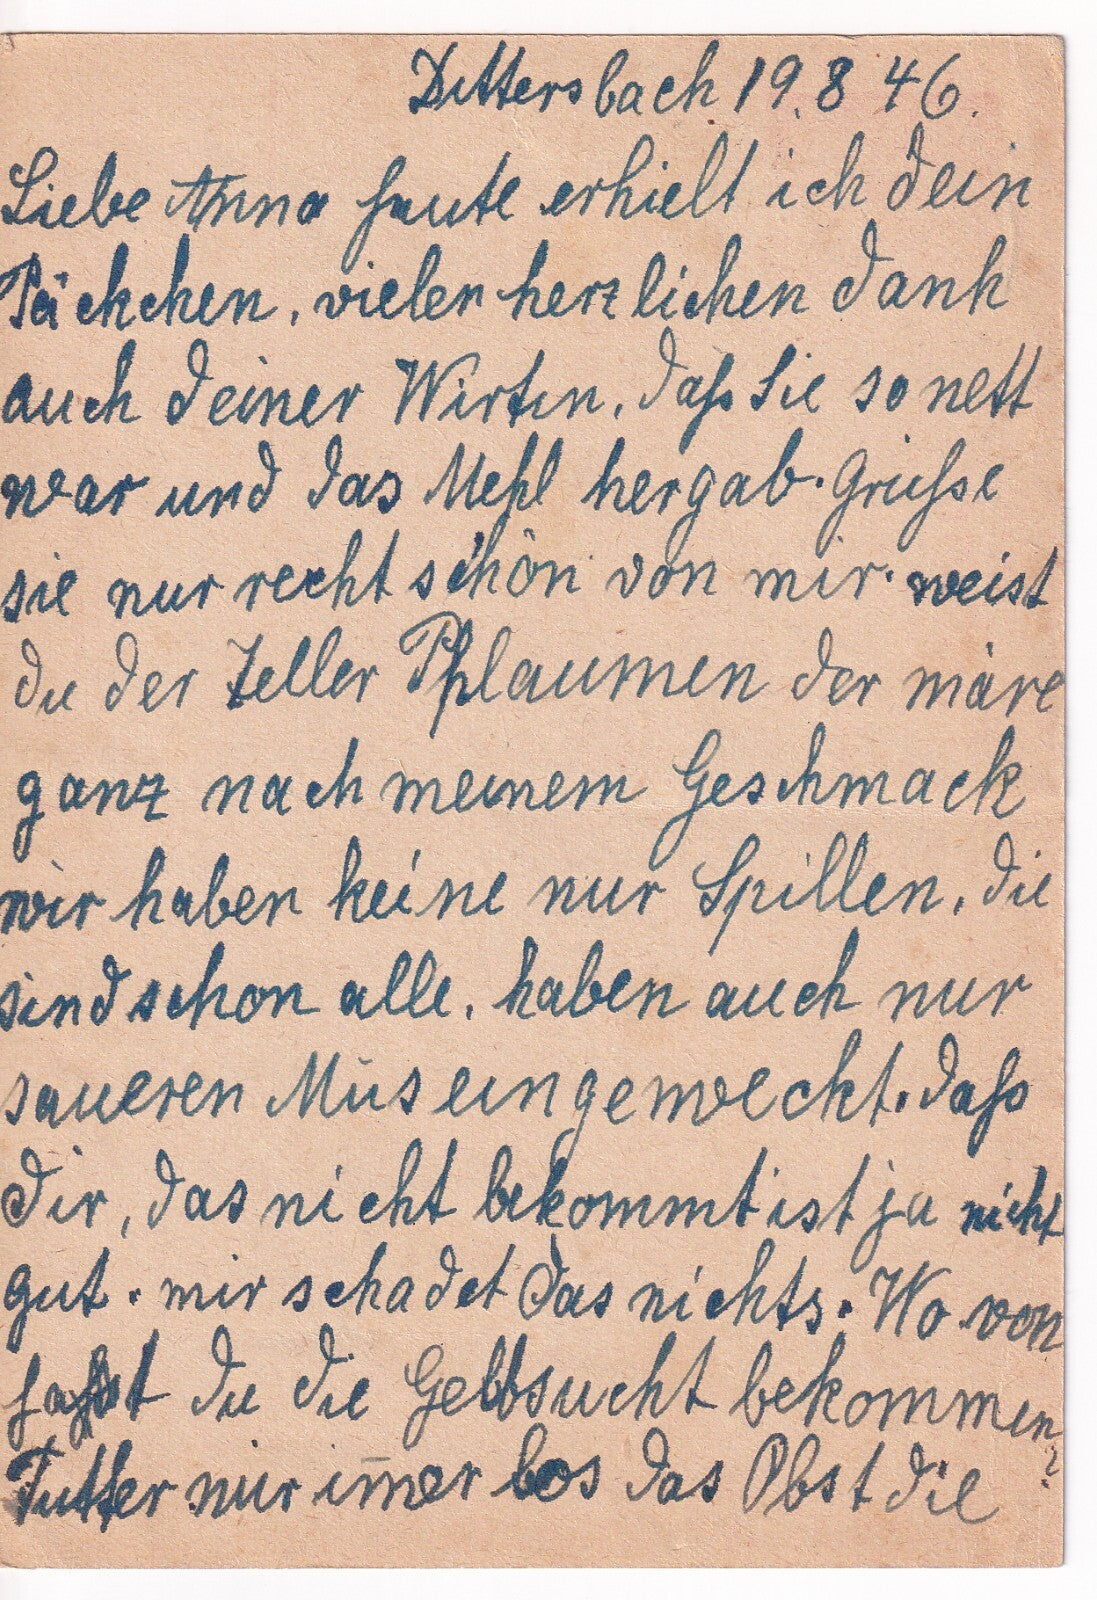 Dittersbach 19.8 46.
Liebe Anna heute erhielt ich dein
Päckchen, vielen herzlichen Dank
auch deiner Wirtin, daß Sie so nett
war und das Mehl hergab. Grüsse
sie nur recht schön von mir. weist
du der Teller Pflaumen der wäre
ganz nach meinem Geschmack
wir haben keine nur Spillen, die
sind schon alle, haben auch nur
saueren Mus eingeweckt. daß
Dir, das nicht bekommt ist ja nicht
gut. mir schadet das nichts. Wo von
hast du die Gelbsucht bekommen?
Futter nur immer los das Obst die